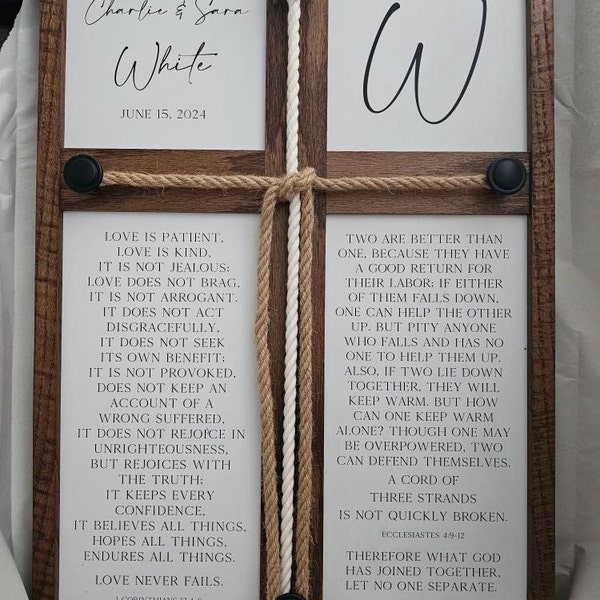 Charlie & Sara
White
JUNE 15, 2024
W
LOVE IS PATIENT,
LOVE IS KIND,
IT IS NOT JEALOUS;
LOVE DOES NOT BRAG,
IT IS NOT ARROGANT.
IT DOES NOT ACT
DISGRACEFULLY,
IT DOES NOT SEEK
ITS OWN BENEFIT;
IT IS NOT PROVOKED,
DOES NOT KEEP AN
ACCOUNT OF A
WRONG SUFFERED,
IT DOES NOT REJOICE IN
UNRIGHTEOUSNESS,
BUT REJOICES WITH
THE TRUTH;
IT KEEPS EVERY
CONFIDENCE,
IT BELIEVES ALL THINGS,
HOPES ALL THINGS,
ENDURES ALL THINGS.
LOVE NEVER FAILS.
1 CORINTHIANS 13:4-8
TWO ARE BETTER THAN
ONE, BECAUSE THEY HAVE
A GOOD RETURN FOR
THEIR LABOR: IF EITHER
OF THEM FALLS DOWN,
ONE CAN HELP THE OTHER
UP. BUT PITY ANYONE
WHO FALLS AND HAS NO
ONE TO HELP THEM UP.
ALSO, IF TWO LIE DOWN
TOGETHER, THEY WILL
KEEP WARM. BUT HOW
CAN ONE KEEP WARM
ALONE? THOUGH ONE MAY
BE OVERPOWERED, TWO
CAN DEFEND THEMSELVES.
A CORD OF
THREE STRANDS
IS NOT QUICKLY BROKEN.
ECCLESIASTES 4:9-12
THEREFORE WHAT GOD
HAS JOINED TOGETHER,
LET NO ONE SEPARATE.